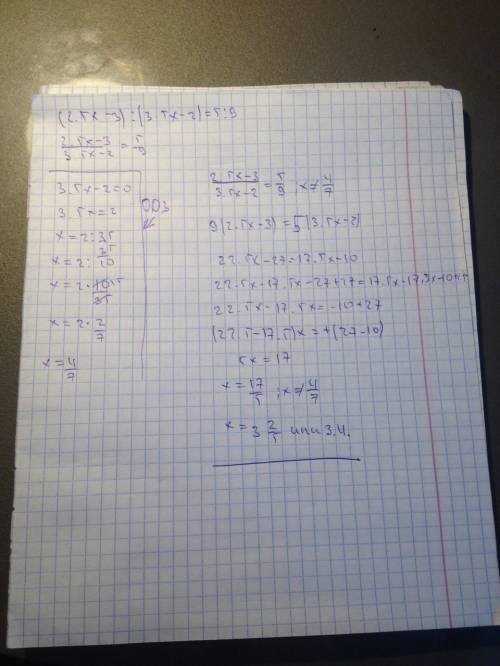 (2.5x-3):(3.5x-2)=5:9
2.5x-3/3.5x-2=5/9
3.5x-2=0
3.5x=2
x=2:3.5
x=2:35/10
x=2·10/35
x=2·2/7
x=4/7
ОДЗ
2.5x-3/3.5x-2=5/9; x≠4/7
9(2.5x-3)=5(3.5x-2)
22.5x-27=17.5x-10
22.5x-17.5x-27+27=17.5x-17.5x-10+27
22.5x-17.5x=-10+27
(22.5-17.5)x=+(27-10)
5x=17
x=17/5; x≠4/7
x=3 2/5 или 3.4.